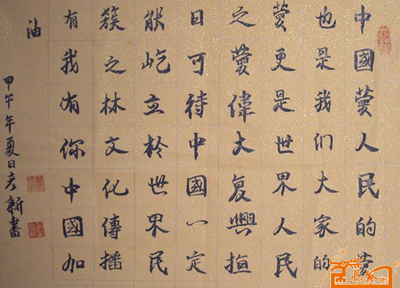 中國夢人民的夢
也是我们大家的
夢更是世界人民
之夢偉大复興指
日可待中國一定
能屹立於世界民
簇之林文化傳播
有我有你中國加
油
甲午年夏日彦新書